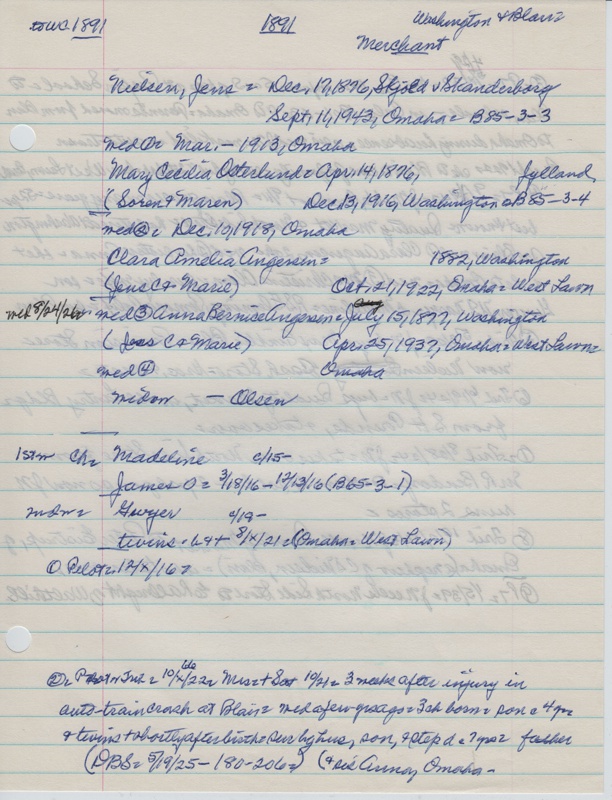 to WC. 1891 1891 Washington & Blair =
Merchant
Nielsen, Jens = Dec. 17, 1876, Skjold v Skanderborg
Sept. 11, 1943, Omaha = B85-3-3
med ① = Mar. — 1913, Omaha
Mary Cecilia Osterlund = Apr. 14, 1876, Jylland,
(Soren & Maren) Dec. 13, 1916, Washington = B85-3-4
med ② = Dec. 10, 1918, Omaha
Clara Amelia Angersen = 1882, Washington
(Jens C & Marie) Oct. 21, 1922, Omaha = West Lawn
med 8/24/26 med ③ Anna Bernice Angersen = July 15, 1877, Washington
(Jens C & Marie) Apr. 25, 1937, Omaha = West Lawn =
med ④ Omaha
widow — Olsen
1st m Ch = Madeline c/15-
James O = 3/18/16 — 12/13/16 (B65-3-1)
2nd m = Gwyer c/18-
twins - b & + 8/x/21 = (Omaha = West Lawn)
O. Pilot = 12/x/16 =
O = 10/x/22 = Mrs = + Sat 10/21 = 3 weeks after injury in
auto-train crash at Blair = med a few yrs ago = 3 ch born = son = 4 yr =
& twins + shortly after birth = sur by hus, son, & step d = 7 yrs = father
(DBS = 5/19/25 — 180-206 =) (& sis Anna, Omaha -